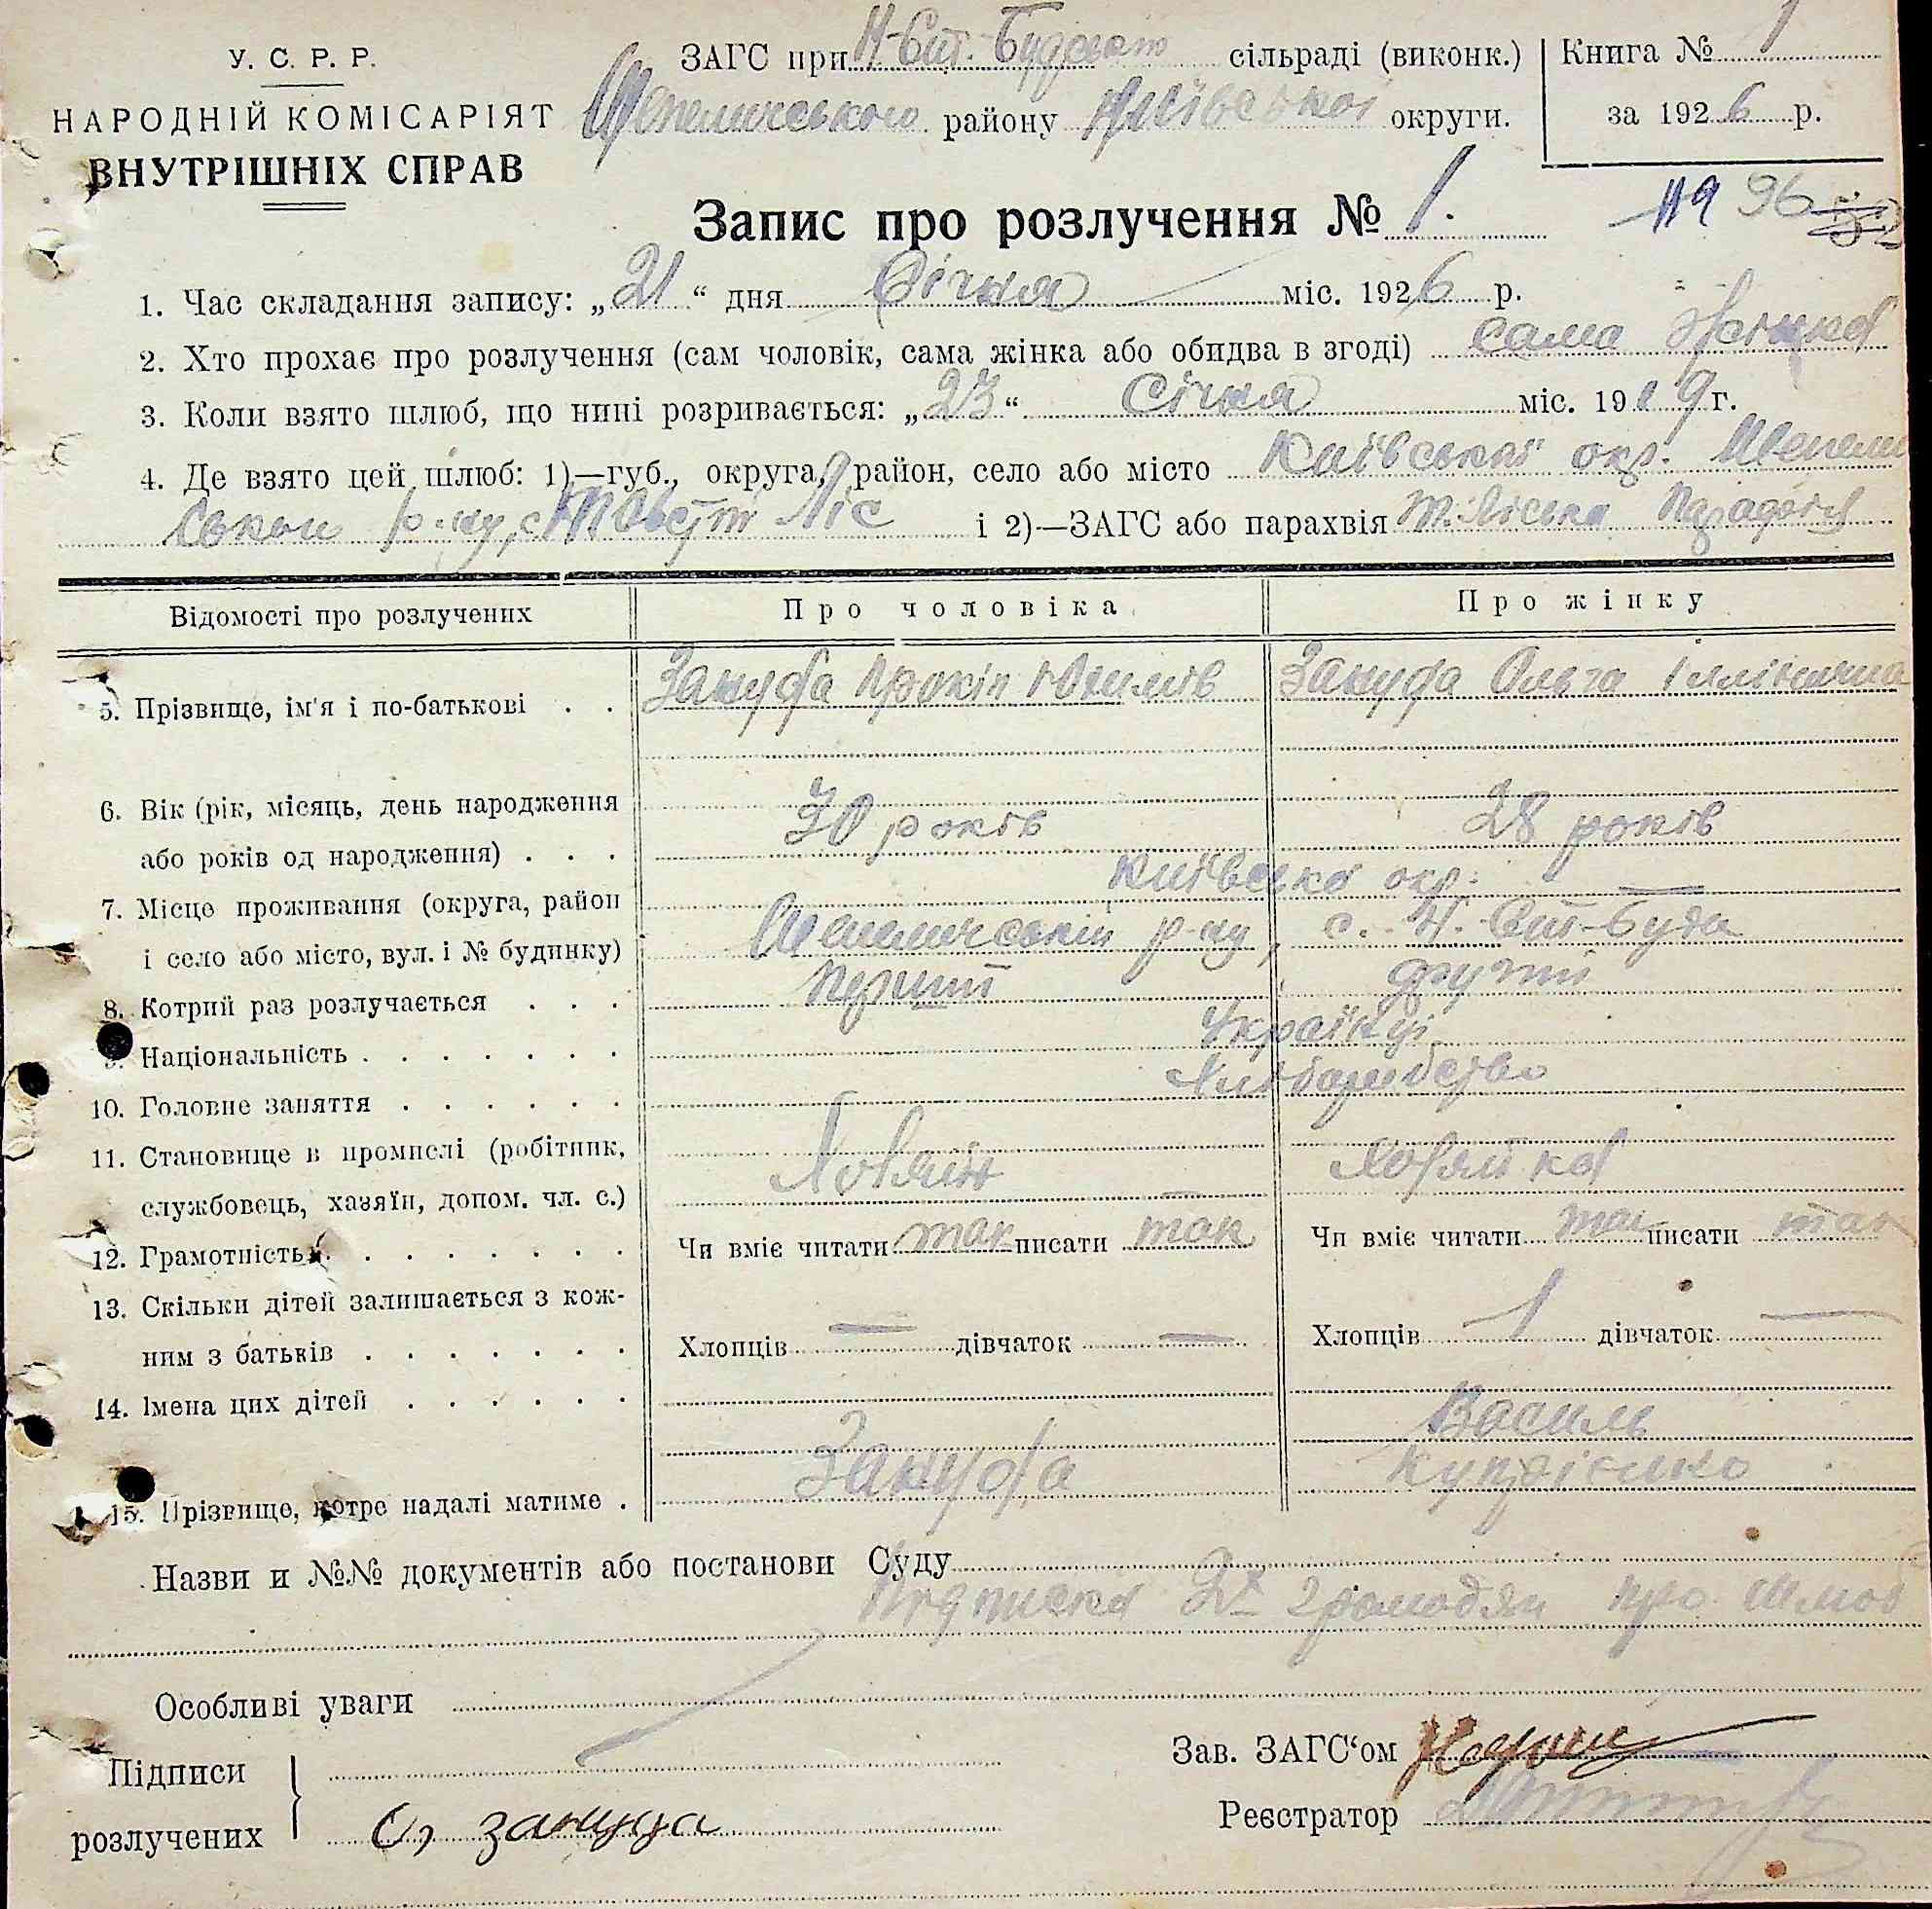 У. С. Р. Р.
НАРОДНІЙ КОМІСАРІЯТ
ВНУТРІШНІХ СПРАВ
ЗАГС при сільраді (виконк.)
Шепелицького району Київської округи.
Книга № 1
за 1926 р.
Запис про розлучення № 1.
119 96
1. Час складання запису: „21“ дня Січня міс. 1926 р.
2. Хто прохає про розлучення (сам чоловік, сама жінка або обидва в згоді) сама жінка
3. Коли взято шлюб, що нині розривається: „23“ Січня міс. 1919 г.
4. Де взято цей шлюб: 1)—губ., округа, район, село або місто Київської окр. Шепели
ського р-ну, с. Товстий Ліс і 2)—ЗАГС або парахвія
Відомості про розлучених
Про чоловіка
Про жінку
5. Прізвище, ім'я і по-батькові . . Зануда Прокіп Зануда Ольга
6. Вік (рік, місяць, день народження
або років од народження) . . . 30 років 28 років
7. Місце проживання (округа, район Київська окр.
і село або місто, вул. і № будинку) Шепелицький р-ну, с. Н. Буда
8. Котрий раз розлучається . . . перший другий
9. Національність . . . . . . . Українці
10. Головне заняття . . . . . . Хліборобство
11. Становище в промислі (робітник,
службовець, хазяїн, допом. чл. с.) Хозяїн Хозяйка
12. Грамотність . . . . . . . Чи вміє читати так писати так Чи вміє читати так писати так
13. Скільки дітей залишається з кож-
ним з батьків . . . . . . . Хлопців — дівчаток — Хлопців 1 дівчаток —
14. Імена цих дітей . . . . . . Василь
15. Прізвище, котре надалі матиме . Зануда
Назви и №№ документів або постанови Суду
Підписка 2х громадян про шлюб
Особливі уваги
Підписи
розлучених
О, зануда
Зав. ЗАГС‘ом
Реєстратор